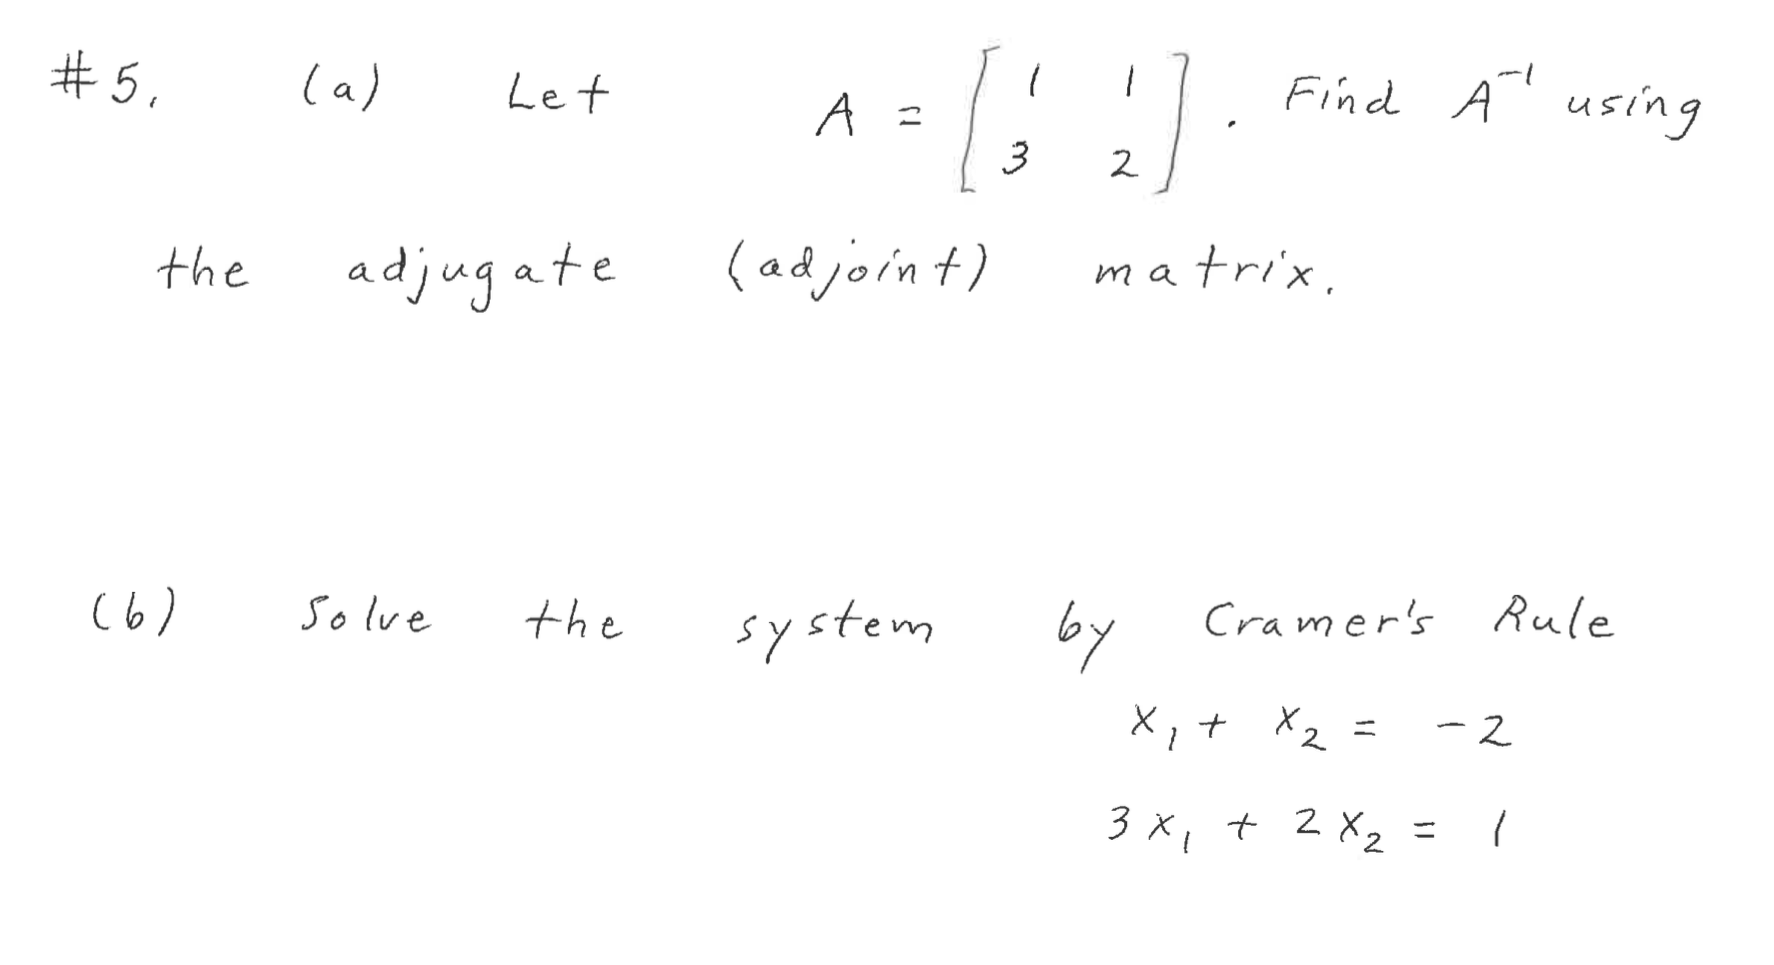 #5. (a) Let A = [ 1 1
3 2 ] . Find A⁻¹ using
the adjugate (adjoint) matrix.
(b) Solve the system by Cramer's Rule
x₁ + x₂ = -2
3x₁ + 2x₂ = 1